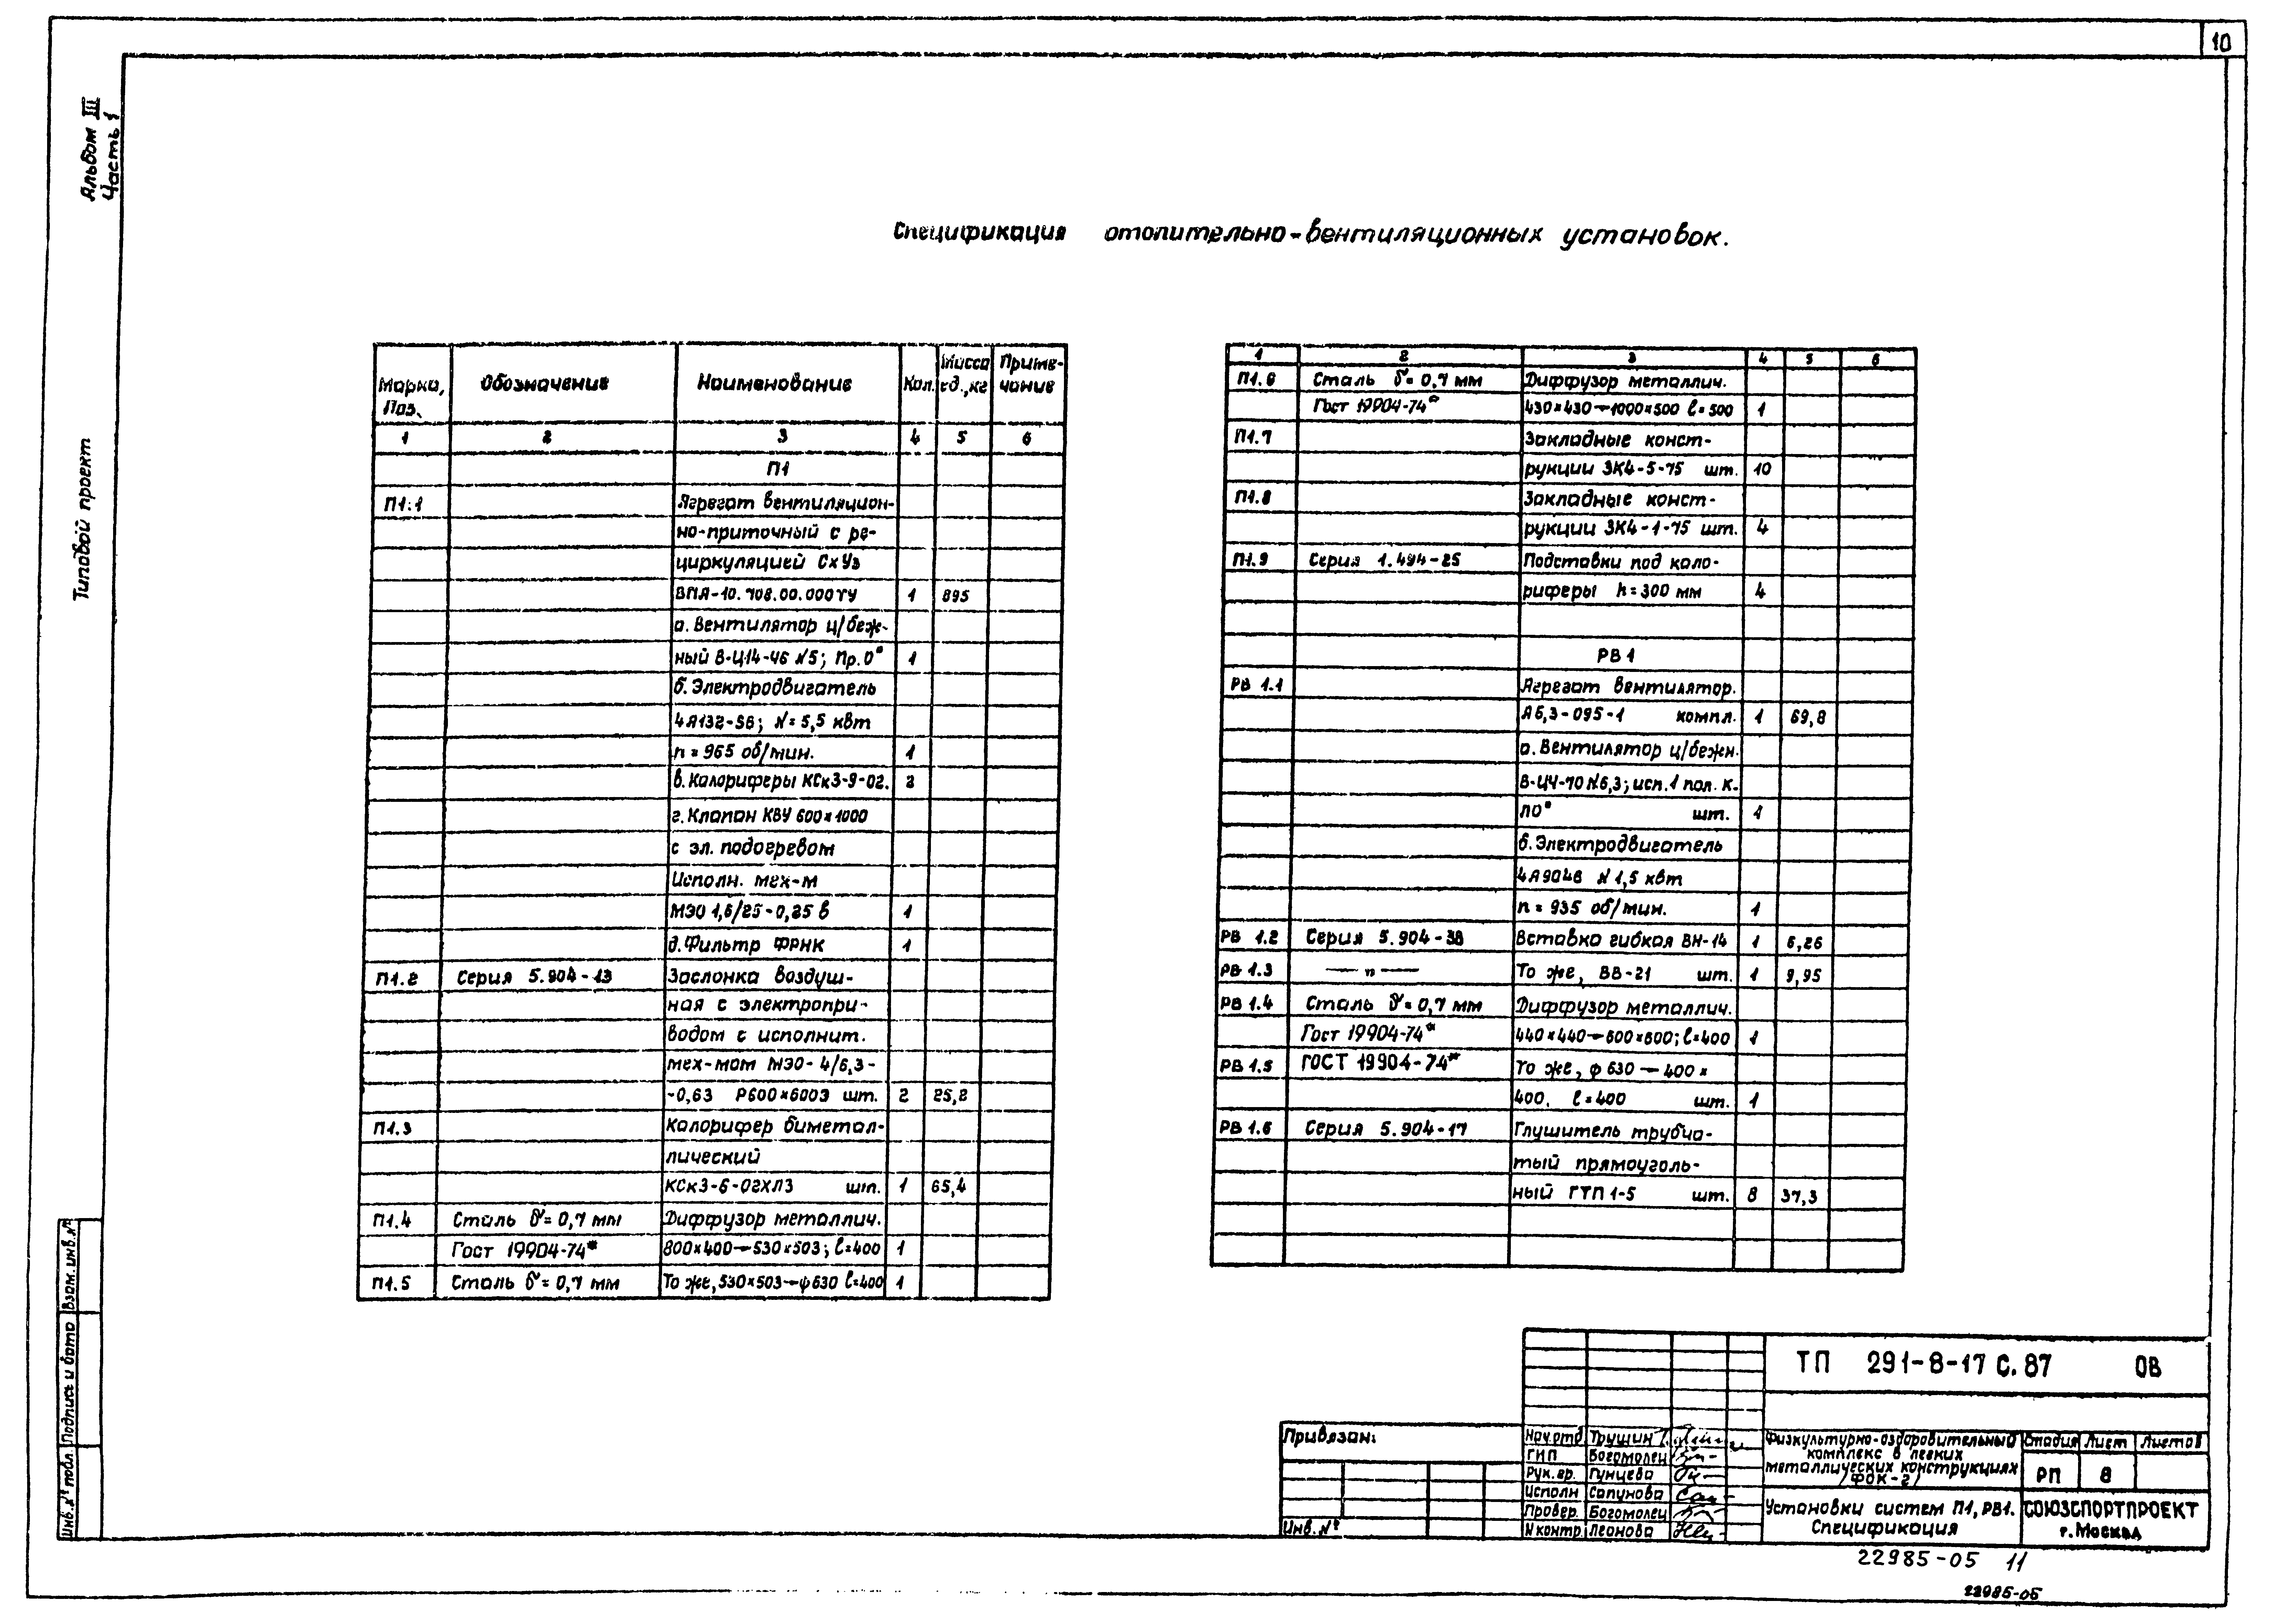 10
Альбом III
Часть 1
Типовой проект
Спецификация отопительно-вентиляционных установок.
Марка, Поз. Обозначение Наименование Кол. Масса ед.,кг Приме-чание
1 2 3 4 5 6
П1
П1.1 Агрегат вентиляцион-
но-приточный с ре-
циркуляцией СхУз
ВПА-10.708.00.000ТУ 1 895
а. Вентилятор ц/беж-
ный В-Ц14-46 №5; Пр.0° 1
б. Электродвигатель
4А132-S6; N=5,5 квт
n=965 об/мин. 1
в. Калориферы КСк3-9-02. 2
г. Клапан КВУ 600×1000
с эл. подогревом
Исполн. мех-м
МЭО 1,6/25-0,25 в 1
д. Фильтр ФРНК 1
П1.2 Серия 5.904-13 Заслонка воздуш-
ная с электропри-
водом с исполнит.
мех-мом МЭО-4/6,3-
-0,63 Р600×600Э шт. 2 25,2
П1.3 Калорифер биметал-
лический
КСк3-6-02ХЛ3 шт. 1 65,4
П1.4 Сталь δ=0,7 мм Диффузор металлич.
Гост 19904-74* 800×400—530×503; l=400 1
П1.5 Сталь δ=0,7 мм То же, 530×503—φ630 l=400 1
1 2 3 4 5 6
П1.6 Сталь δ=0,7 мм Диффузор металлич.
Гост 19904-74* 430×430—1000×500 l=500 1
П1.7 Закладные конст-
рукции ЗК4-5-75 шт. 10
П1.8 Закладные конст-
рукции ЗК4-1-75 шт. 4
П1.9 Серия 1.494-25 Подставки под кало-
риферы h=300 мм 4
РВ1
РВ 1.1 Агрегат вентилятор.
А6,3-095-1 компл. 1 69,8
а. Вентилятор ц/бежн.
В-Ц4-70 №6,3; исп.1 пол. к.
Л0° шт. 1
б. Электродвигатель
4А90L6 N 1,5 квт
n=935 об/мин. 1
РВ 1.2 Серия 5.904-38 Вставка гибкая ВН-14 1 6,26
РВ 1.3 —"— То же, ВВ-21 шт. 1 9,95
РВ 1.4 Сталь δ=0,7 мм Диффузор металлич.
Гост 19904-74* 440×440—600×600; l=400 1
РВ 1.5 ГОСТ 19904-74* То же, φ630—400×
400. l=400 шт. 1
РВ 1.6 Серия 5.904-17 Глушитель трубча-
тый прямоуголь-
ный ГТП 1-5 шт. 8 37,3
Взам. инв.№
Подпись и дата
Инв.№ подл.
Привязан:
Инв. №
Нач.отд Трушин
ГИП Богомолец
Рук.гр. Гунцева
Исполн Сапунова
Провер. Богомолец
Н контр. Леонова
ТП 291-8-17 с.87 ОВ
Физкультурно-оздоровительный
комплекс в легких
металлических конструкциях
/ФОК-2/
Стадия Лист Листов
РП 8
Установки систем П1, РВ1.
Спецификация
СОЮЗСПОРТПРОЕКТ
г. Москва
22985-05 11
22985-05